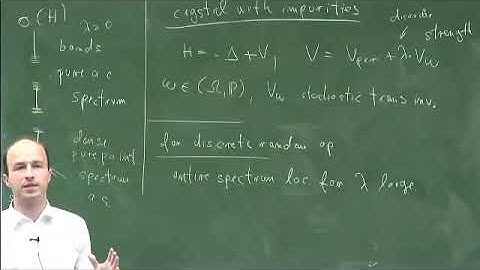 σ(H) λ>0
bands
pure a c
spectrum
dense
pure point
spectrum
crystal with impurities
disorder
strength
H = -Δ + V, V = Vper + λ·Vω
ω ∈ (Ω, P), Vω stochastic trans inv.
for discrete random op
entire spectrum loc. for λ large